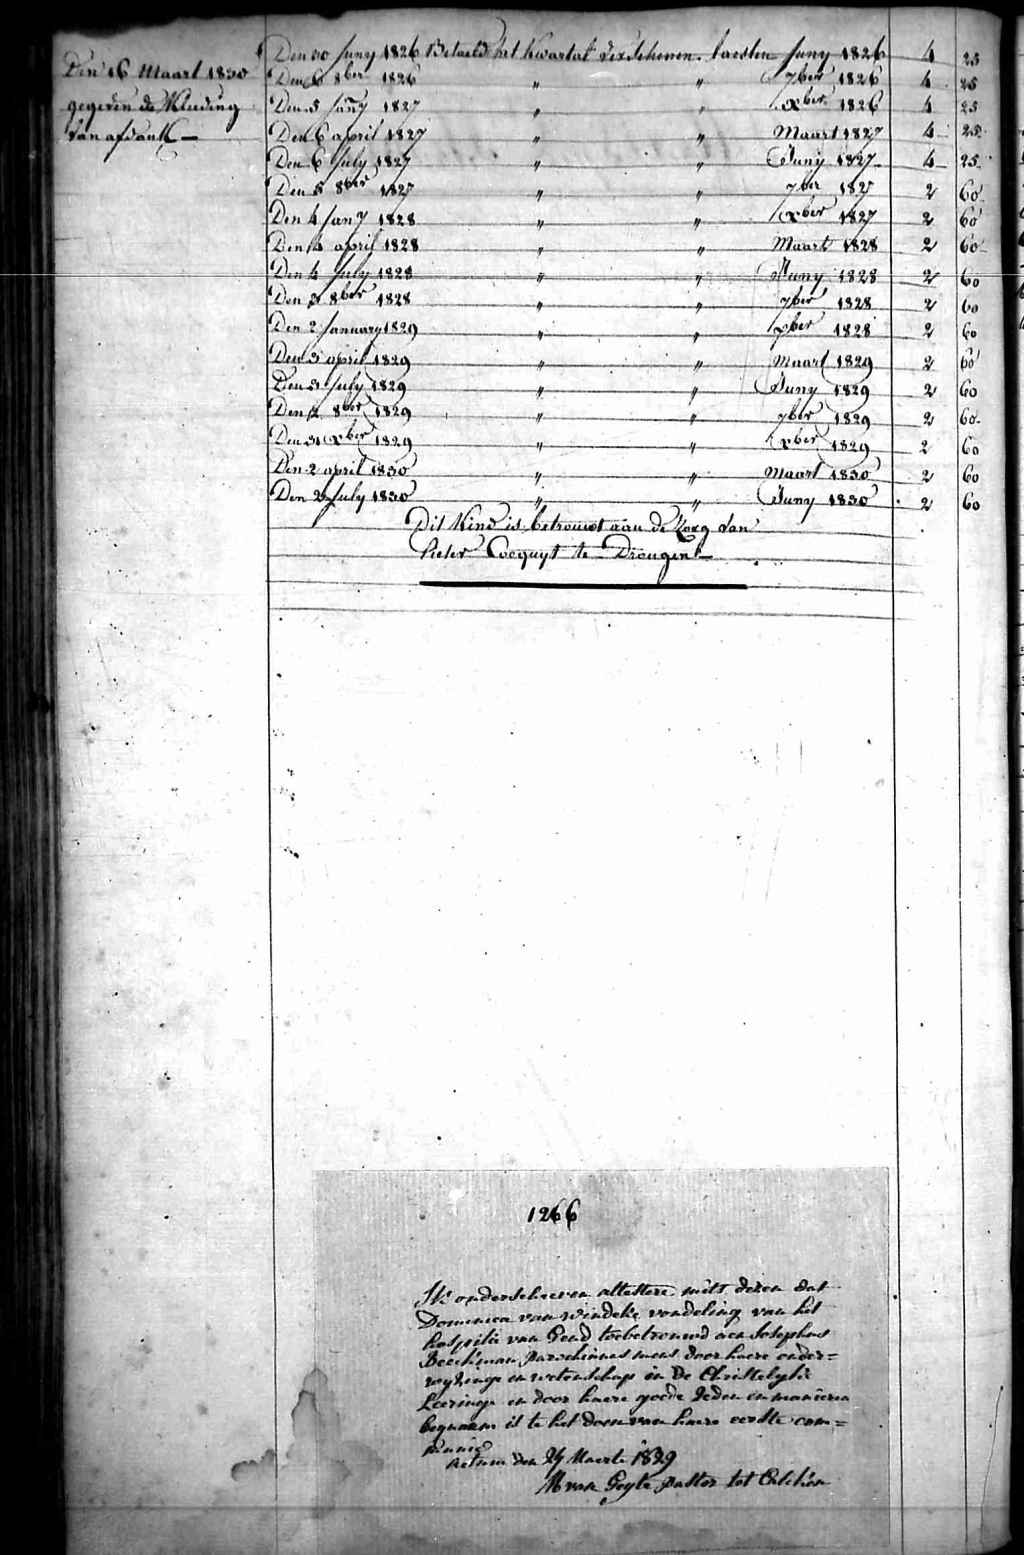 Den 16 Maart 1830
gegeven de Kleeding
van afdank —
Den 30 Juny 1826 Betaeld het kwartal verschenen laesten Juny 1826 4 25
Den 6 8ber 1826 " " 7ber 1826 4 25
Den 5 Jany 1827 " " xber 1826 4 25
Den 6 april 1827 " " Maart 1827 4 25
Den 6 July 1827 " " Juny 1827 4 25
Den 5 8ber 1827 " " 7ber 1827 2 60
Den 4 Jany 1828 " " xber 1827 2 60
Den 4 april 1828 " " Maart 1828 2 60
Den 4 July 1828 " " Juny 1828 2 60
Den 3 8ber 1828 " " 7ber 1828 2 60
Den 2 January 1829 " " xber 1828 2 60
Den 3 april 1829 " " Maart 1829 2 60
Den 3 July 1829 " " Juny 1829 2 60
Den 2 8ber 1829 " " 7ber 1829 2 60
Den 31 xber 1829 " " xber 1829 2 60
Den 2 april 1830 " " Maart 1830 2 60
Den 2 July 1830 " " Juny 1830 2 60
Dit Kind is betrouwt aan de Zorg van
Pieter Cocquyt te Drongen —
1266
Ik onderschreven attestere mits dezen dat
Dominica van Windeke vondeling van het
hospitie van Gend toebetrouwd aen Josephus
Beeckman parochiaens mens door haere onder=
wyzinge en wetenschap in de Christelyke
Leeringe en door haere goede zeden en manieren
bequaem is te het doen van haere eerste com=
munie
actum den 24 Maerte 1829
M van Geyte pastor tot